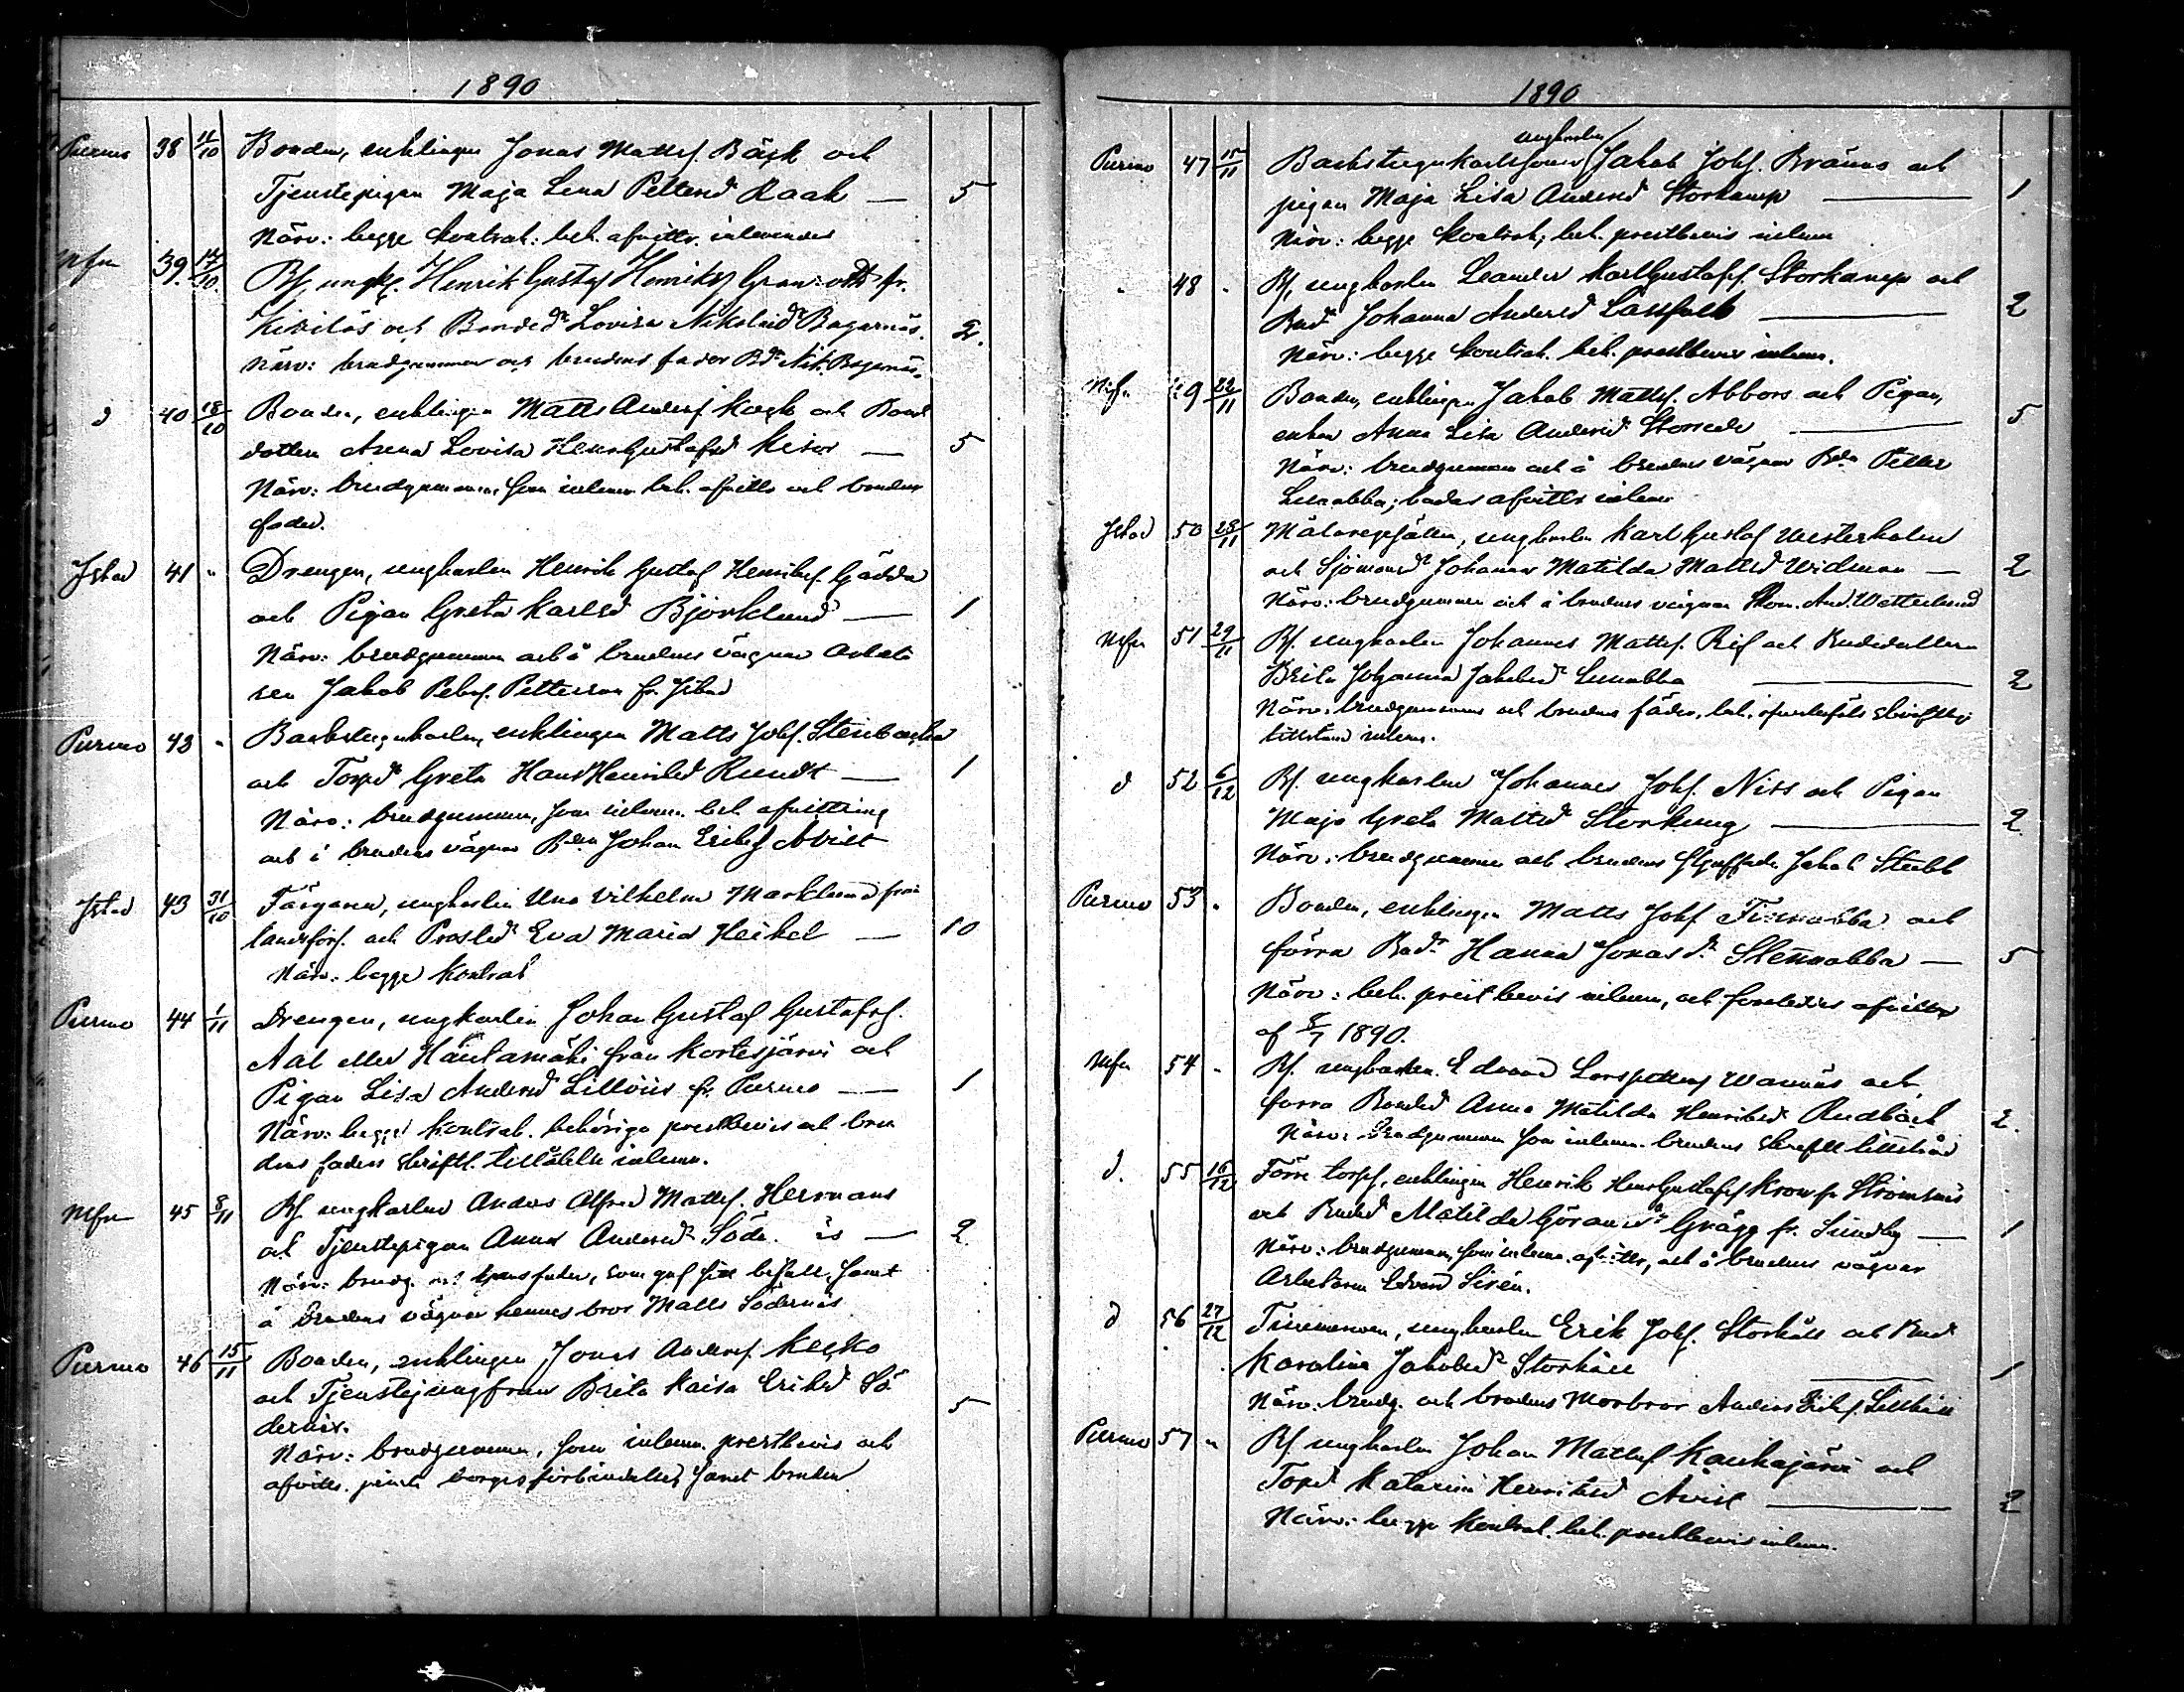 1890
Purmo 38 11/10 Bonden, enklingen Jonas Mattss. Bäsk och
Tjenstepigan Maja Lena Pettersdr Raak — 5
Närv: begge kontrah: beh. afvittr. inlemnades
Mfn 39. 14/10. Bs. ungk. Henrik Gustaf Henriks fr.
och Bondedr Lovisa Nikolaidr Bagarnäs. 2.
Närv: brudgummen och brudens fader Bd. Nik. Bagarnäs.
d 40 18/10 Bonden, enklingen Matts Anderss och Bond
dottern Anna Lovisa HenrGustafsd Keisor — 5
Närv: brudgummen, som inlemn. beh. afvittr och brudens
fader.
Jstad 41 " Drengen, ungkarlen Henrik Gustaf Henrikss. Gädda
och Pigan Greta Karlsd Björklund — 1
Närv: brudgummen och å brudens vägnar Arbeta
ren Jakob Petterson fr. Jstad
Purmo 42 " Backstugukarlen, enklingen Matts Johs. Stenbacka
och Torpd Greta Hans Henriksd Rundt — 1
Närv: brudgummen, som inlemn. beh afvittring
och å brudens vägnar Bden Johan Erikss Åvist
Jstad 43 31/10 Färgaren, ungkarlen Uno Vilhelm Marklund från
landsförs. och Prostedr Eva Maria Heikel — 10
Närv: begge kontrah
Purmo 44 1/11 Drengen, ungkarlen Johan Gustaf Gustafss.
Aal eller Häntamäki från Kortesjärvi och
Pigan Lisa Andersd Lillöiis fr. Purmo — 1
Närv: begge kontrah. behöriga prestbevis och bru
dens faders skriftl. tillåtelse inlemn.
Mfn 45 8/11 Bs. ungkarlen Anders Alfred Mattss. Hermans
och Tjenstepigan Anna Andersdr Söde is — 2
Närv: brudg. och hans fader, som gaf sitt bifall, samt
å brudens vägnar hennes bror Matts Södernäs
Purmo 46 15/11 Bonden, enklingen Jonas Anderss. Kecko
och Tjenstejungfrun Brita Kaisa Eriksd Sö
dernäs. 5
Närv: brudgummen, som inlemn. prestbevis och
afvittr. jemte borgesförbindelse, samt bruden
1890
ungkarlen
Purmo 47 15/11 Backstugukarlssonen Jakob Johs. Bränns och
pigan Maja Lisa Andersd Storkamp — 1
Närv: begge kontrah; beh. prestbevis inlemn
" 48 " Bs, ungkarlen Leander KarlGustafss. Storkamp och
Bnd Johanna Andersd Lassfolk — 2
Närv: begge kontrah. beh. prestbevis inlemn.
Mfn 49 22/11 Bonden, enklingen Jakob Mattss. Abbors och Pigan,
enkan Anna Lisa Andersd — 5
Närv: brudgummen och å brudens vägnar Bdn Petter
Lunabba; bådas afvittr inlemn
Jstad 50 28/11 Målaregesällen, ungkarlen Karl Gustaf Westerholm
och Sjömansdr Johanna Matilda Mattsd Widman — 2
Närv: brudgummen och å brudens vägnar And. Wetterlund
Mfn 51 29/11 Bs. ungkarlen Johannes Mattss. Rif och Bondedottern
Brita Johanna Jakobsd Lunabba — 2
Närv: brudgummen och brudens fader, beh. skriftligt
tillstånd inlemn.
d 52 6/12 Bs. ungkarlen Johannes Johs. Niss och Pigan
Maja Greta Mattsd Storkung — 2.
Närv: brudgummen och brudens styffader Jakob Stubb
Purmo 53 " Bonden, enklingen Matts Johs Finnabba och
förra Bndr Hanna Jonasdr Stennabba — 5
Närv: beh. prest bevis inlemn, och företedes afvittr
af 8/7 1890.
Mfn 54 " Bs. ungkarlen Edvard Larspetters Wannäs och
förra Bonded Anna Matilda Henriksd Rudbäck 2.
Närv: Brudgummen som inlemn. brudens skriftl tillstånd
d. 55 16/12 Förre torps, enklingen Henrik HenrGustafss Krow fr Strömsnäs
och Bnded Matilda Göransdr Grägg fr. Sundby — 1
Närv: brudgummen, som inlemn. afvittr, och å brudens vägnar
Arbetaren Edvard Sirén.
d 56 27/12 Timmerman, ungkarlen Erik Johs. Storkåll och Bnd
Karolina Jakobsdr Storkåll — 1
Närv: brudg. och brudens Morbror Anders Eriks. Lillkåll
Purmo 57 " Bs ungkarlen Johan Mattss Kaukajärvi och
Torpd Katarina Henriksd Åvist — 2
Närv: begge kontrah. beh. prestbevis inlemn.